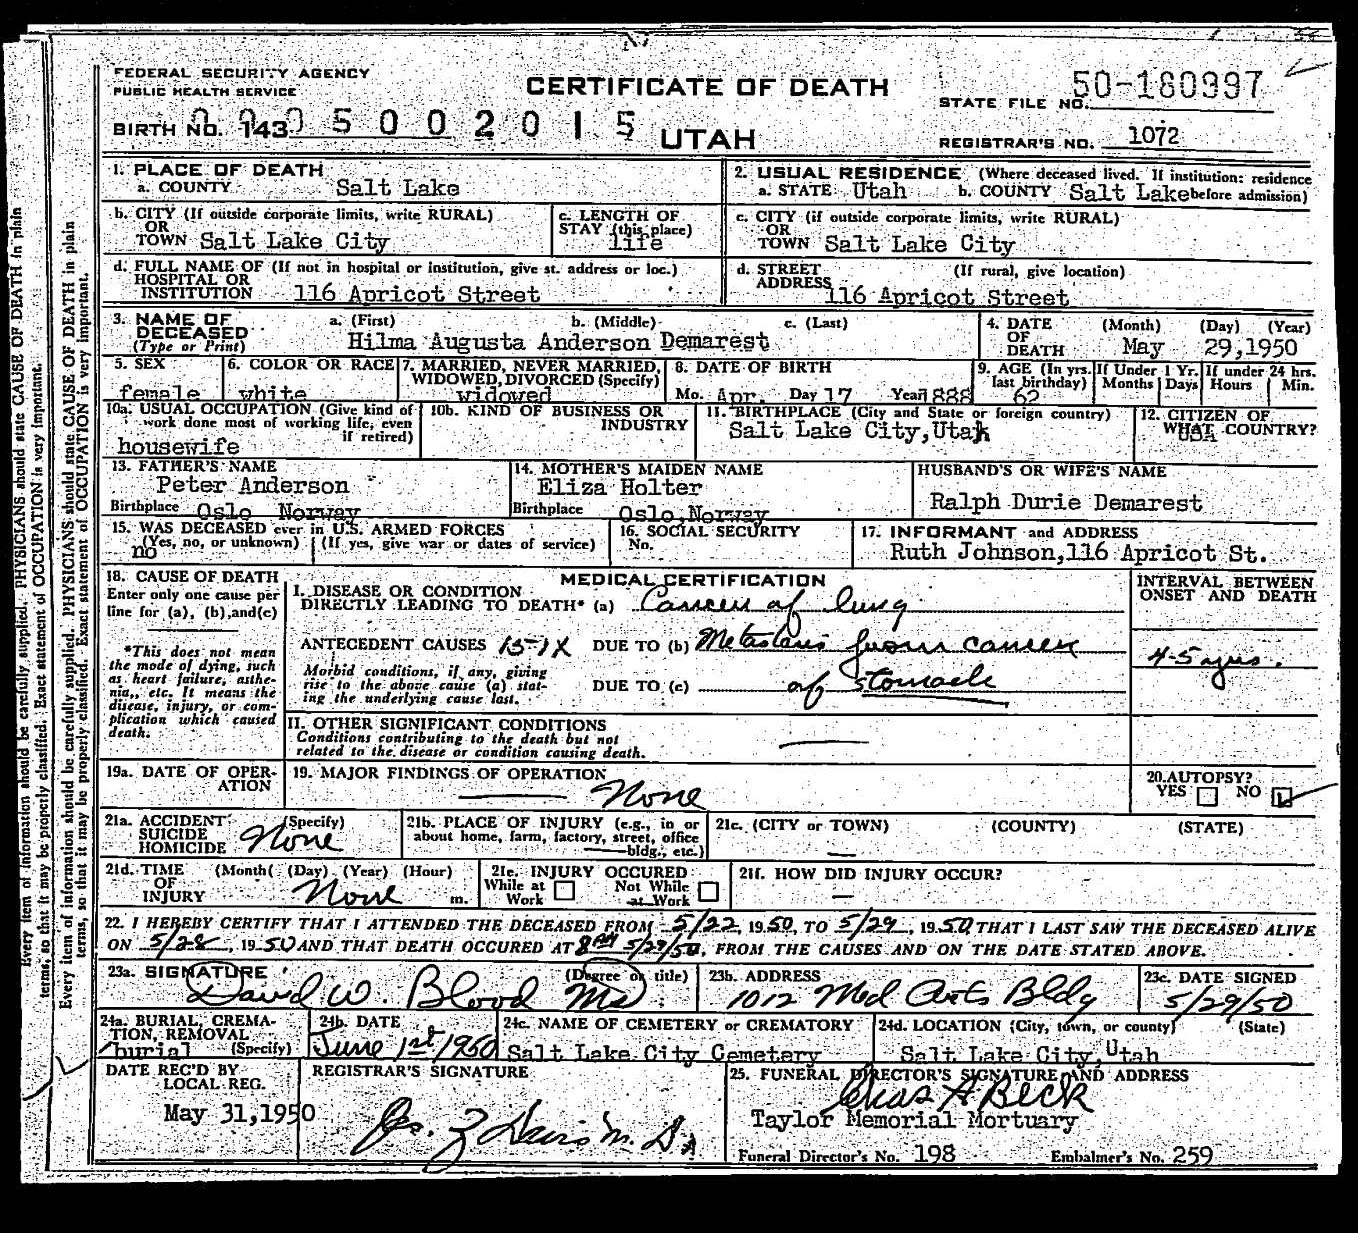 FEDERAL SECURITY AGENCY
PUBLIC HEALTH SERVICE
CERTIFICATE OF DEATH
STATE FILE NO. 50-180997
BIRTH NO. 143 5002015
UTAH
REGISTRAR'S NO. 1072
1. PLACE OF DEATH
a. COUNTY Salt Lake
2. USUAL RESIDENCE (Where deceased lived. If institution: residence
a. STATE Utah b. COUNTY Salt Lake before admission)
b. CITY (If outside corporate limits, write RURAL)
OR
TOWN Salt Lake City
c. LENGTH OF
STAY (this place)
life
c. CITY (if outside corporate limits, write RURAL)
OR
TOWN Salt Lake City
d. FULL NAME OF (If not in hospital or institution, give st. address or loc.)
HOSPITAL OR
INSTITUTION 116 Apricot Street
d. STREET (If rural, give location)
ADDRESS 116 Apricot Street
3. NAME OF a. (First) b. (Middle) c. (Last)
DECEASED
(Type or Print) Hilma Augusta Anderson Demarest
4. DATE (Month) (Day) (Year)
OF
DEATH May 29,1950
5. SEX
female
6. COLOR OR RACE
white
7. MARRIED, NEVER MARRIED,
WIDOWED, DIVORCED (Specify)
widowed
8. DATE OF BIRTH
Mo. Apr. Day 17 Year 1888
9. AGE (In yrs. last birthday)
62
If Under 1 Yr.
Months Days
If under 24 hrs.
Hours Min.
10a. USUAL OCCUPATION (Give kind of
work done most of working life, even
if retired)
housewife
10b. KIND OF BUSINESS OR
INDUSTRY
11. BIRTHPLACE (City and State or foreign country)
Salt Lake City, Utah
12. CITIZEN OF
WHAT COUNTRY?
USA
13. FATHER'S NAME
Peter Anderson
Birthplace Oslo Norway
14. MOTHER'S MAIDEN NAME
Eliza Holter
Birthplace Oslo, Norway
HUSBAND'S OR WIFE'S NAME
Ralph Durie Demarest
15. WAS DECEASED ever in U.S. ARMED FORCES
(Yes, no, or unknown) (If yes, give war or dates of service)
no
16. SOCIAL SECURITY
No.
17. INFORMANT and ADDRESS
Ruth Johnson, 116 Apricot St.
18. CAUSE OF DEATH
Enter only one cause per
line for (a), (b), and (c)
*This does not mean
the mode of dying, such
as heart failure, asthe-
nia,, etc. It means the
disease, injury, or com-
plication which caused
death.
MEDICAL CERTIFICATION
I. DISEASE OR CONDITION
DIRECTLY LEADING TO DEATH* (a) Cancer of lung
ANTECEDENT CAUSES 151X DUE TO (b) Metastasis from cancer
Morbid conditions, if any, giving
rise to the above cause (a) stat-
ing the underlying cause last.
DUE TO (c) of stomach
INTERVAL BETWEEN
ONSET AND DEATH
4-5 yrs.
II. OTHER SIGNIFICANT CONDITIONS
Conditions contributing to the death but not
related to the disease or condition causing death.
19a. DATE OF OPER-
ATION
19. MAJOR FINDINGS OF OPERATION
None
20. AUTOPSY?
YES NO
21a. ACCIDENT (Specify)
SUICIDE
HOMICIDE None
21b. PLACE OF INJURY (e.g., in or
about home, farm, factory, street, office
bldg., etc.)
21c. (CITY or TOWN) (COUNTY) (STATE)
21d. TIME (Month( (Day) (Year) (Hour)
OF
INJURY None m.
21e. INJURY OCCURED
While at Work Not While at Work
21f. HOW DID INJURY OCCUR?
22. I HEREBY CERTIFY THAT I ATTENDED THE DECEASED FROM 5/22, 1950, TO 5/29, 1950 THAT I LAST SAW THE DECEASED ALIVE
ON 5/28, 1950 AND THAT DEATH OCCURED AT 8 AM 5/29/50, FROM THE CAUSES AND ON THE DATE STATED ABOVE.
23a. SIGNATURE (Degree or title)
David W. Blood MD
23b. ADDRESS
1012 Med Arts Bldg
23c. DATE SIGNED
5/29/50
24a. BURIAL, CREMA-
TION, REMOVAL
burial (Specify)
24b. DATE
June 1st 1950
24c. NAME OF CEMETERY or CREMATORY
Salt Lake City Cemetery
24d. LOCATION (City, town, or county) (State)
Salt Lake City, Utah
DATE REC'D BY
LOCAL REG.
May 31,1950
REGISTRAR'S SIGNATURE
25. FUNERAL DIRECTOR'S SIGNATURE AND ADDRESS
Chas A Beck
Taylor Memorial Mortuary
Funeral Director's No. 198 Embalmer's No. 259
Every item of information should be carefully supplied. PHYSICIANS should state CAUSE OF DEATH in plain
terms, so that it may be properly classified. Exact statement of OCCUPATION is very important.
Every item of information should be carefully supplied. PHYSICIANS should state CAUSE OF DEATH in plain
terms, so that it may be properly classified. Exact statement of OCCUPATION is very important.